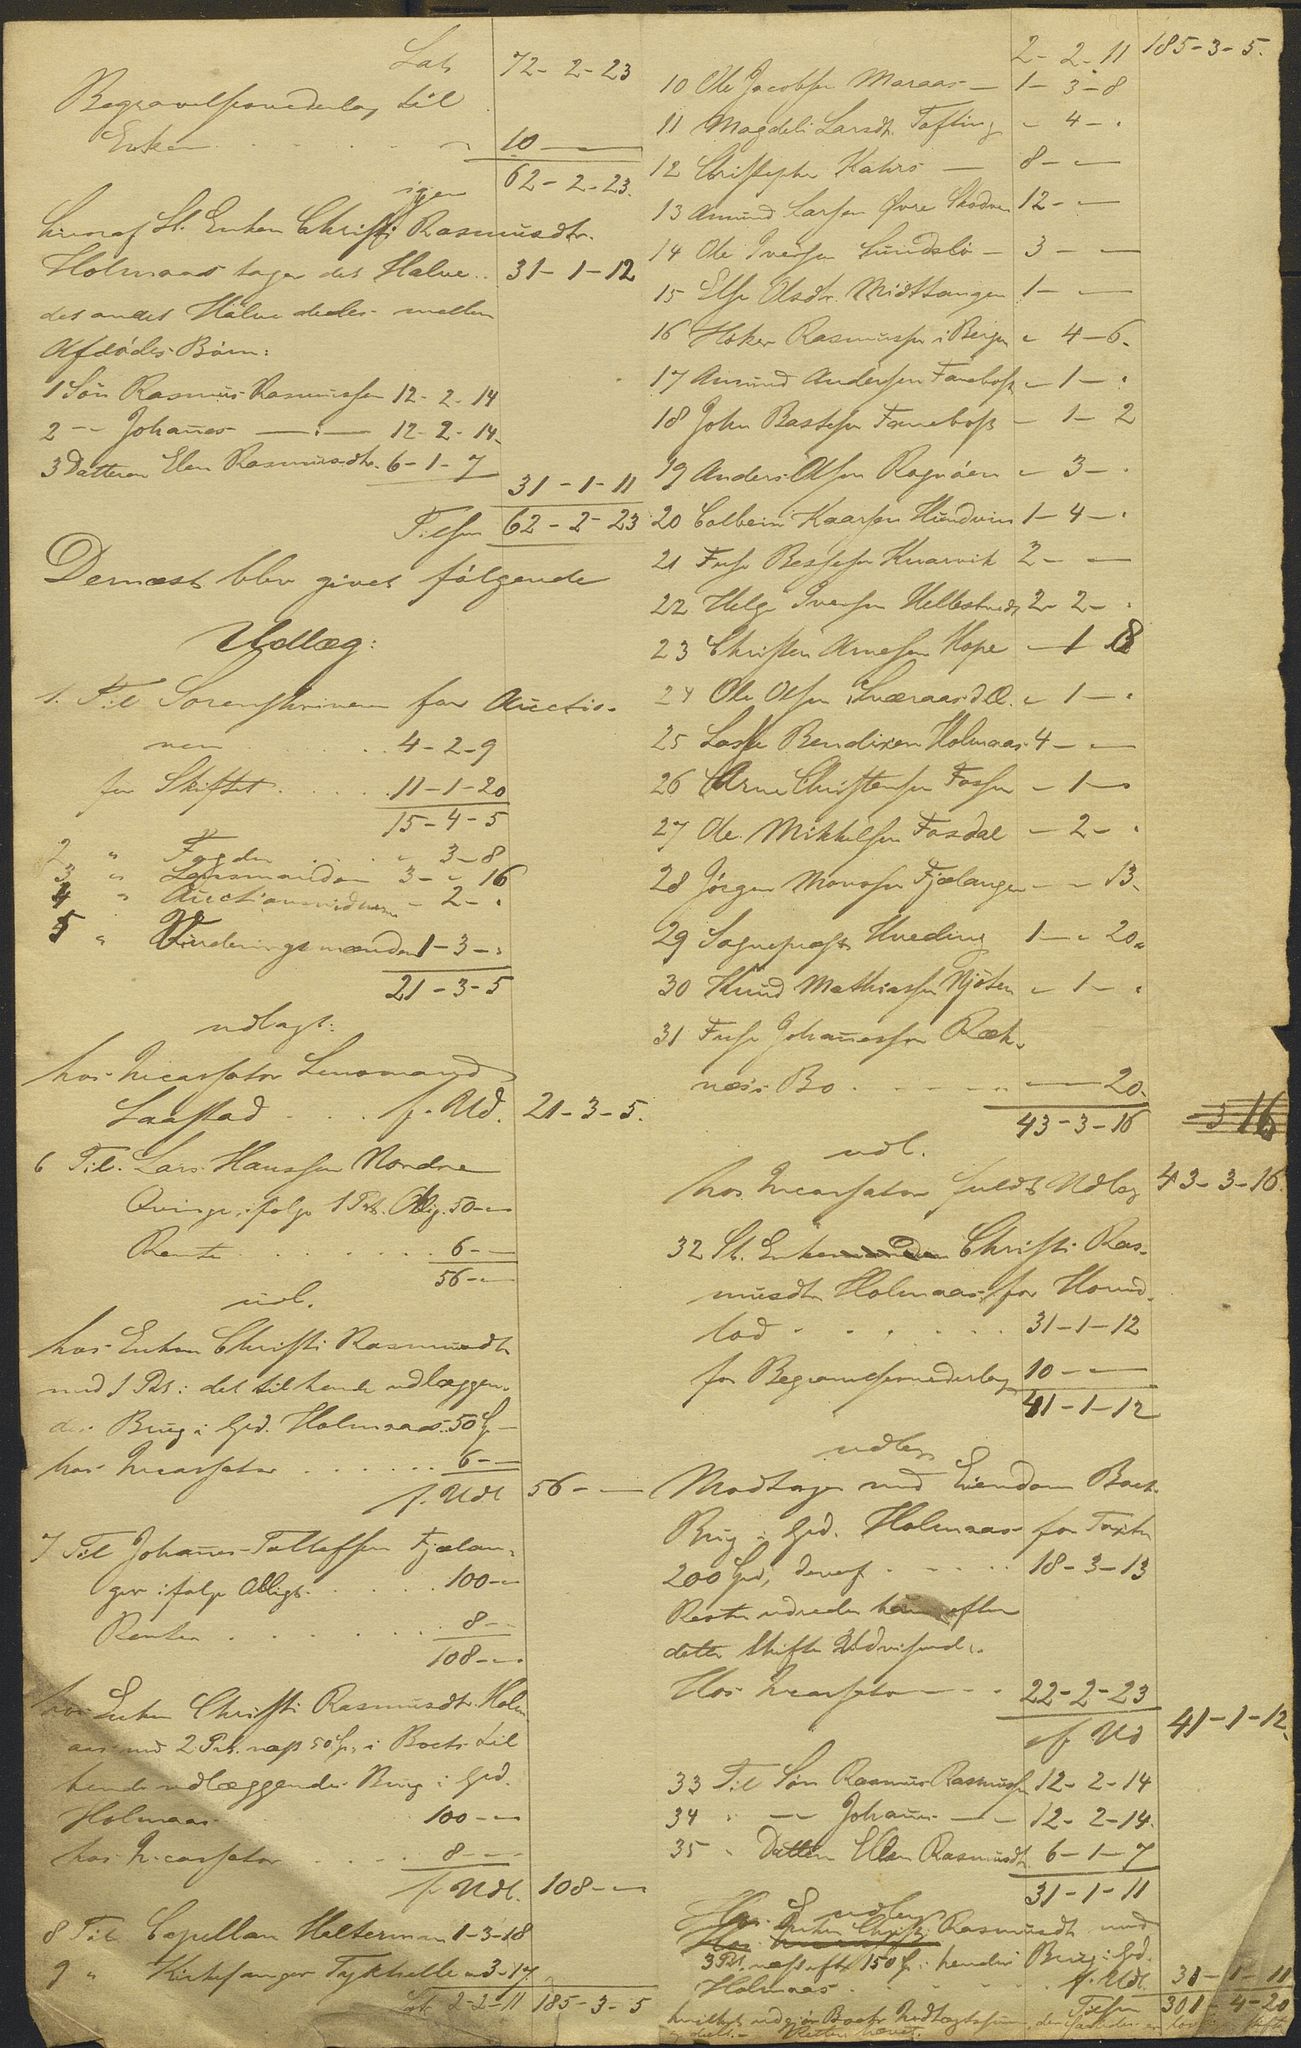 Lats 72-2-23
Begravelsesvederlag til
Enken . . . . . . " 10 — —
igen 62-2-23.
hvoraf St. Enken Christi Rasmusdtr.
Holmaas tager det Halve .. 31-1-12
det andet Halve deles mellem
Afdødes Børn:
1 Søn Rasmus Rasmussen 12-2-14
2 -- Johañes —:— 12-2-14.
3 Datteren Elen Rasmusdtr. 6-1-7
31-1-11
Tilsm 62-2-23
Dernæst blev givet følgende
Udlæg:
1. Til Sorenskriveren for Auctio-
nen . . . . . . 4-2-9
for Skiftet . . . . . 11-1-20
15-4-5
2 " Fogden . . . . " 3-8
3 " Lensmanden 3-"16
4 " Auctionsvidnerne - 2- "
5 " Vurderingsmændene 1-3-"
21-3-5
udlagt:
hos Incassator Lensmand
Laastad . . . f. Ud. 21-3-5.
6 Til Lars Hanssen Nordre
Qvinge ifølge 1 Prt. Oblig. 50-"-
Rente . . . . . . . 6-—
56-"-
udl.
hos Enken Christi Rasmusdtr
med 1 Prt: i det til hende udlæggen-
de Brug i Grd. Holmaas 50 Sp -
hos Incassator . . . . . . 6-—
f. Udl 56-—
7 Til Johañes Tollefsen Fjælan-
ger ifølge Obligt. . . . . . 100-"-
Renter . . . . . . . . 8-—
108-"-
hos Enken Christi Rasmusdtr. Holm
aas med 2 Prt. næst 50 Sp. i Boets til
hende udlæggende Brug i Grd.
Holmaas 100-"-
hos Incassator . . . . 8-—
f. Udl. 108-"-
8 Til Capellan Halterman 1-3-18
9 " Kirkesanger Tykhelle " 3-17
Lat. 2-2-11 185-3-5
2-2-11 185-3-5.
10 Ole Jacobsen Maraas — 1-3-8
11 Magdeli Larsdtr. Tofting - 4- "
12 Christopher Kahrs — 8-—
13 Amund Larsen Øvre Skodven 12-—
14 Ole Iversen Lundslø — 3-—
15 Else Olsdtr. Midttangen 1-—
16 Haker Rasmussen i Bergen - 4-6.
17 Amund Andersen Fanebost - 1-"
18 John Bastesen Fannebost - 1-2
19 Anders Olsen Ragnøen - 3-"
20 Colbein Kaarsen Hundvin 1-4-"
21 Fuse Bessesen Knarvik 2-—
22 Helge Iversen Hellestvedt 2-2-"
23 Christen Arnesen Hope — 1 18
24 Ole Olsen Sværaas d. Æ. - 1-"
25 Lasse Bendixen Holmaas 4-—
26 Arne Christensen Fosse - 1-"
27 Ole Mikkelsen Fosdal - 2-"
28 Jørgen Monssen Fjælanger - - 13.
29 Sognepræst Hveding 1-" 20"
30 Knud Mathiassen Njøten - 1-"
31 Fuse Johañessen Ræk-
næs's Bo . . . . . . — 20.
43-3-16
udl.
hos Incassator fuldt Udlæg 43-3-16.
32 St. Enken Christi Ras-
musdtr Holmaas for Hoved-
lod . . . . . . 31-1-12
for Begravelsesvederlag 10-—
41-1-12
udlæg
Modtager med Eiendom Boets
Brug i Grd. Holmaas for Taxten
200 Spd, deraf . . . . . 18-3-13
Resten udreder hun efter
dette Skiftes Udvisende.
Hos Incassator — . . 22-2-23
f. Ud 41-1-12.
33 Til Søn Rasmus Rasmussen 12-2-14
34 " — Johañes — 12-2-14.
35 " Datteren Ellen Rasmusdtr 6-1-7
31-1-11
udlæg
Hos Enken Christi Rasmusdtr med
3 Prt. næst efter 150 Sp. i hendes Brug i Grd.
Holmaas . . . . f. Udl. 31-1-11
Tilsm 301-4-20